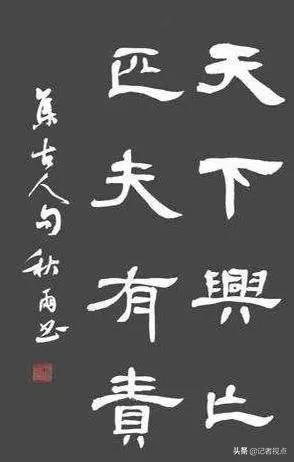 天下興亡
匹夫有責
集古人句 秋雨书
头条 @记者视点